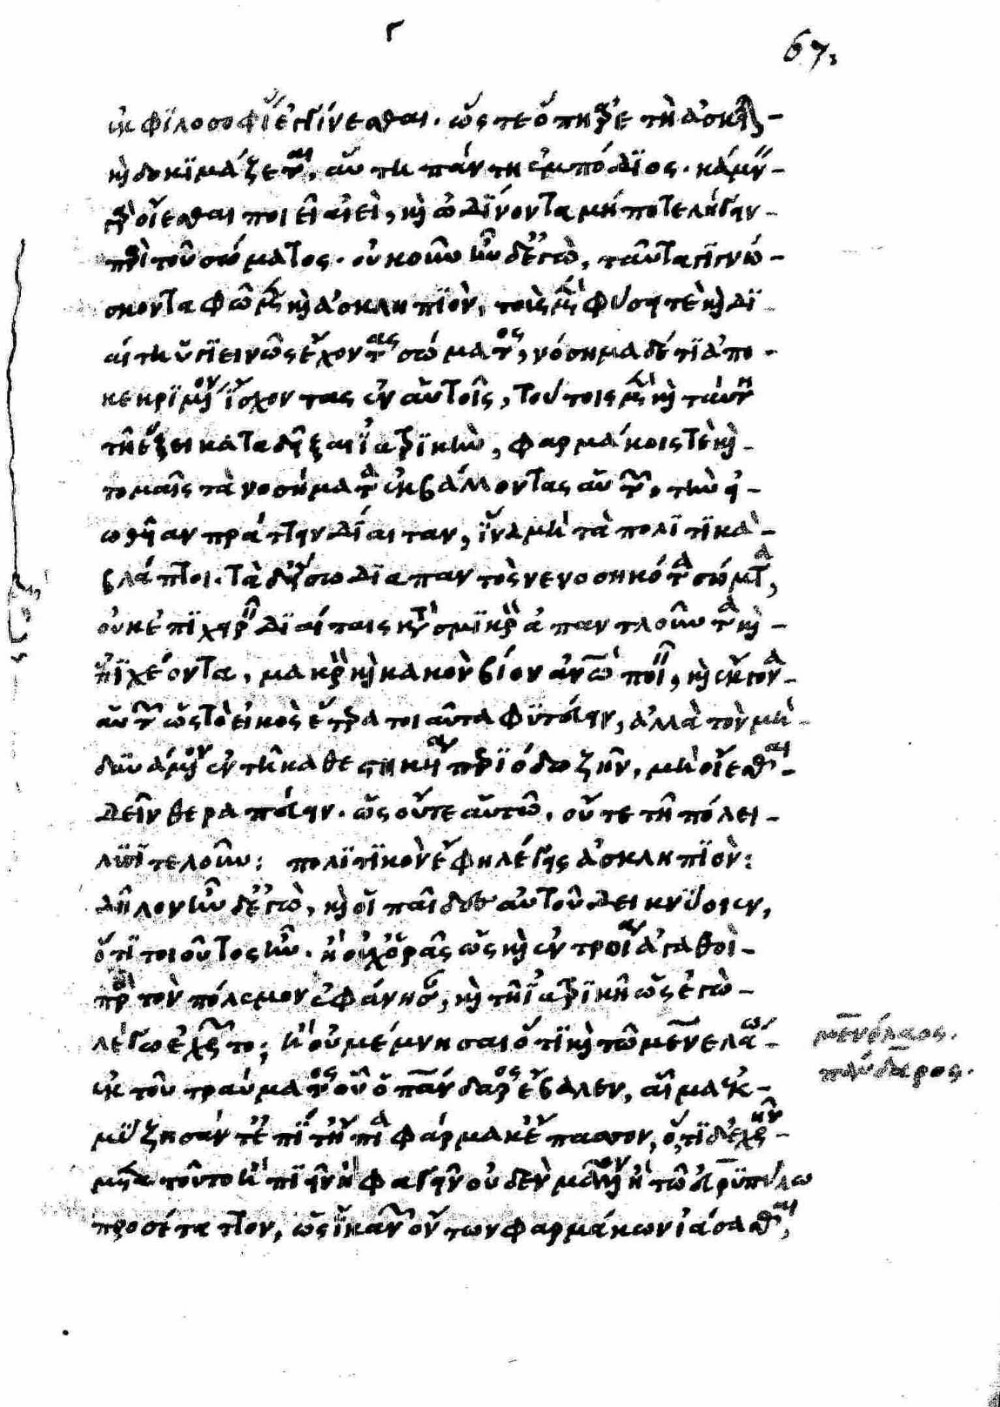 γ
67
ἐκ φιλοσοφίας ἐγγίνεσθαι. ὥστε ὅπῃ ἀρετὴ ἀσκεῖται
καὶ δοκιμάζεται, αὕτη πάντῃ ἐμπόδιος. κάμνειν
γὰρ οἴεσθαι ποιεῖ ἀεὶ, καὶ ὠδίνοντα μήποτε λήγειν
περὶ τοῦ σώματος. οὐκοῦν ἦν δ' ἐγὼ, ταῦτα γιγνώ-
σκοντα φῶμεν καὶ ἀσκληπιὸν, τοὺς μὲν φύσει τε καὶ δι-
αίτῃ ὑγιεινῶς ἔχοντας τὰ σώματα, νόσημα δέ τι ἀπο-
κεκριμένον ἴσχοντας ἐν αὑτοῖς, τούτοις μὲν καὶ ταύτῃ
τῇ ἕξει καταδεῖξαι ἰατρικὴν, φαρμάκοις τε καὶ
τομαῖς τὰ νοσήματα ἐκβάλλοντας αὐτῶν, τὴν εἰ-
ωθυῖαν προστάττειν δίαιταν, ἵνα μὴ τὰ πολιτικὰ
βλάπτοι. τὰ δ' εἴσω διὰ παντὸς νενοσηκότα σώματα,
οὐκ ἐπιχειρεῖν διαίταις κατὰ σμικρὸν ἀπαντλοῦντα καὶ
ἐπιχέοντα, μακρὸν καὶ κακὸν βίον ἀνθρώπῳ ποιεῖν, καὶ ἔκγονα
αὐτῶν ὡς τὸ εἰκὸς ἕτερα τοιαῦτα φυτεύειν, ἀλλὰ τὸν μὴ
δυνάμενον ἐν τῇ καθεστηκυίᾳ περιόδῳ ζῆν, μὴ οἴεσθαι
δεῖν θεραπεύειν. ὡς οὔτε αὑτῷ, οὔτε τῇ πόλει
λυσιτελοῦν: πολιτικὸν ἔφη λέγεις ἀσκληπιὸν:
δῆλον ἦν δ' ἐγὼ, καὶ οἱ παῖδες αὐτοῦ δεικνύοιεν,
ὅτι τοιοῦτος ἦν. ἢ οὐχ ὁρᾷς ὡς καὶ ἐν τροίᾳ ἀγαθοὶ
πρὸς τὸν πόλεμον ἐφάνησαν, καὶ τῇ ἰατρικῇ ὡς ἐγὼ
λέγω ἐχρῶντο; ἢ οὐ μέμνησαι ὅτι καὶ τῷ μενελάῳ
ἐκ τοῦ τραύματος οὗ ὁ πάνδαρος ἔβαλεν, αἷμα ἐκ-
μυζήσαντ' ἐπί τ' ἤπια φάρμακ' ἔπασσον, ὅ,τι δ' ἐχρῆν
μετὰ τοῦτο ἢ πιεῖν ἢ φαγεῖν οὐδὲν μᾶλλον ἢ τῷ εὐρυπύλῳ
προσέταττον, ὡς ἱκανῶν ὄντων φαρμάκων ἰάσασθαι,
μενέλαος.
πάνδαρος.